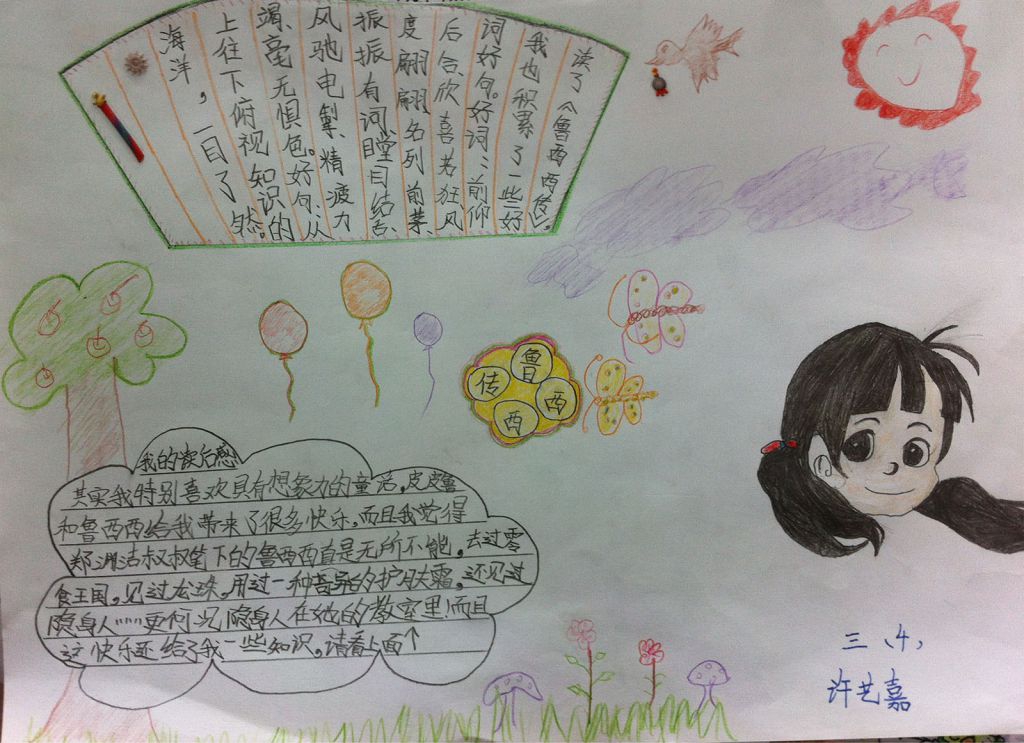 读了《鲁西西传》。
我也积累了一些好
词好句。好词：前仰
后合、欣喜若狂、风
度翩翩、名列前茅、
振振有词、瞠目结舌、
风驰电掣、精疲力
竭、毫无惧色。好句：从
上往下俯视知识的
海洋，一目了然。
鲁
西
西
传
我的读后感
其实我特别喜欢具有想象力的童话，皮皮鲁
和鲁西西给我带来了很多快乐，而且我觉得
郑渊洁叔叔笔下的鲁西西真是无所不能。去过零
食王国，见过龙珠，用过一种奇异的护肤霜，还见过
隐身人……更何况隐身人在她的教室里！而且
这快乐还给了我一些知识。请看上面↑
三、4，
许艺嘉